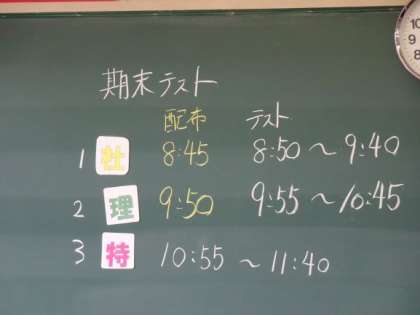 期末テスト
配布 テスト
1 社 8:45 8:50～9:40
2 理 9:50 9:55～10:45
3 特 10:55～11:40
10
9
8